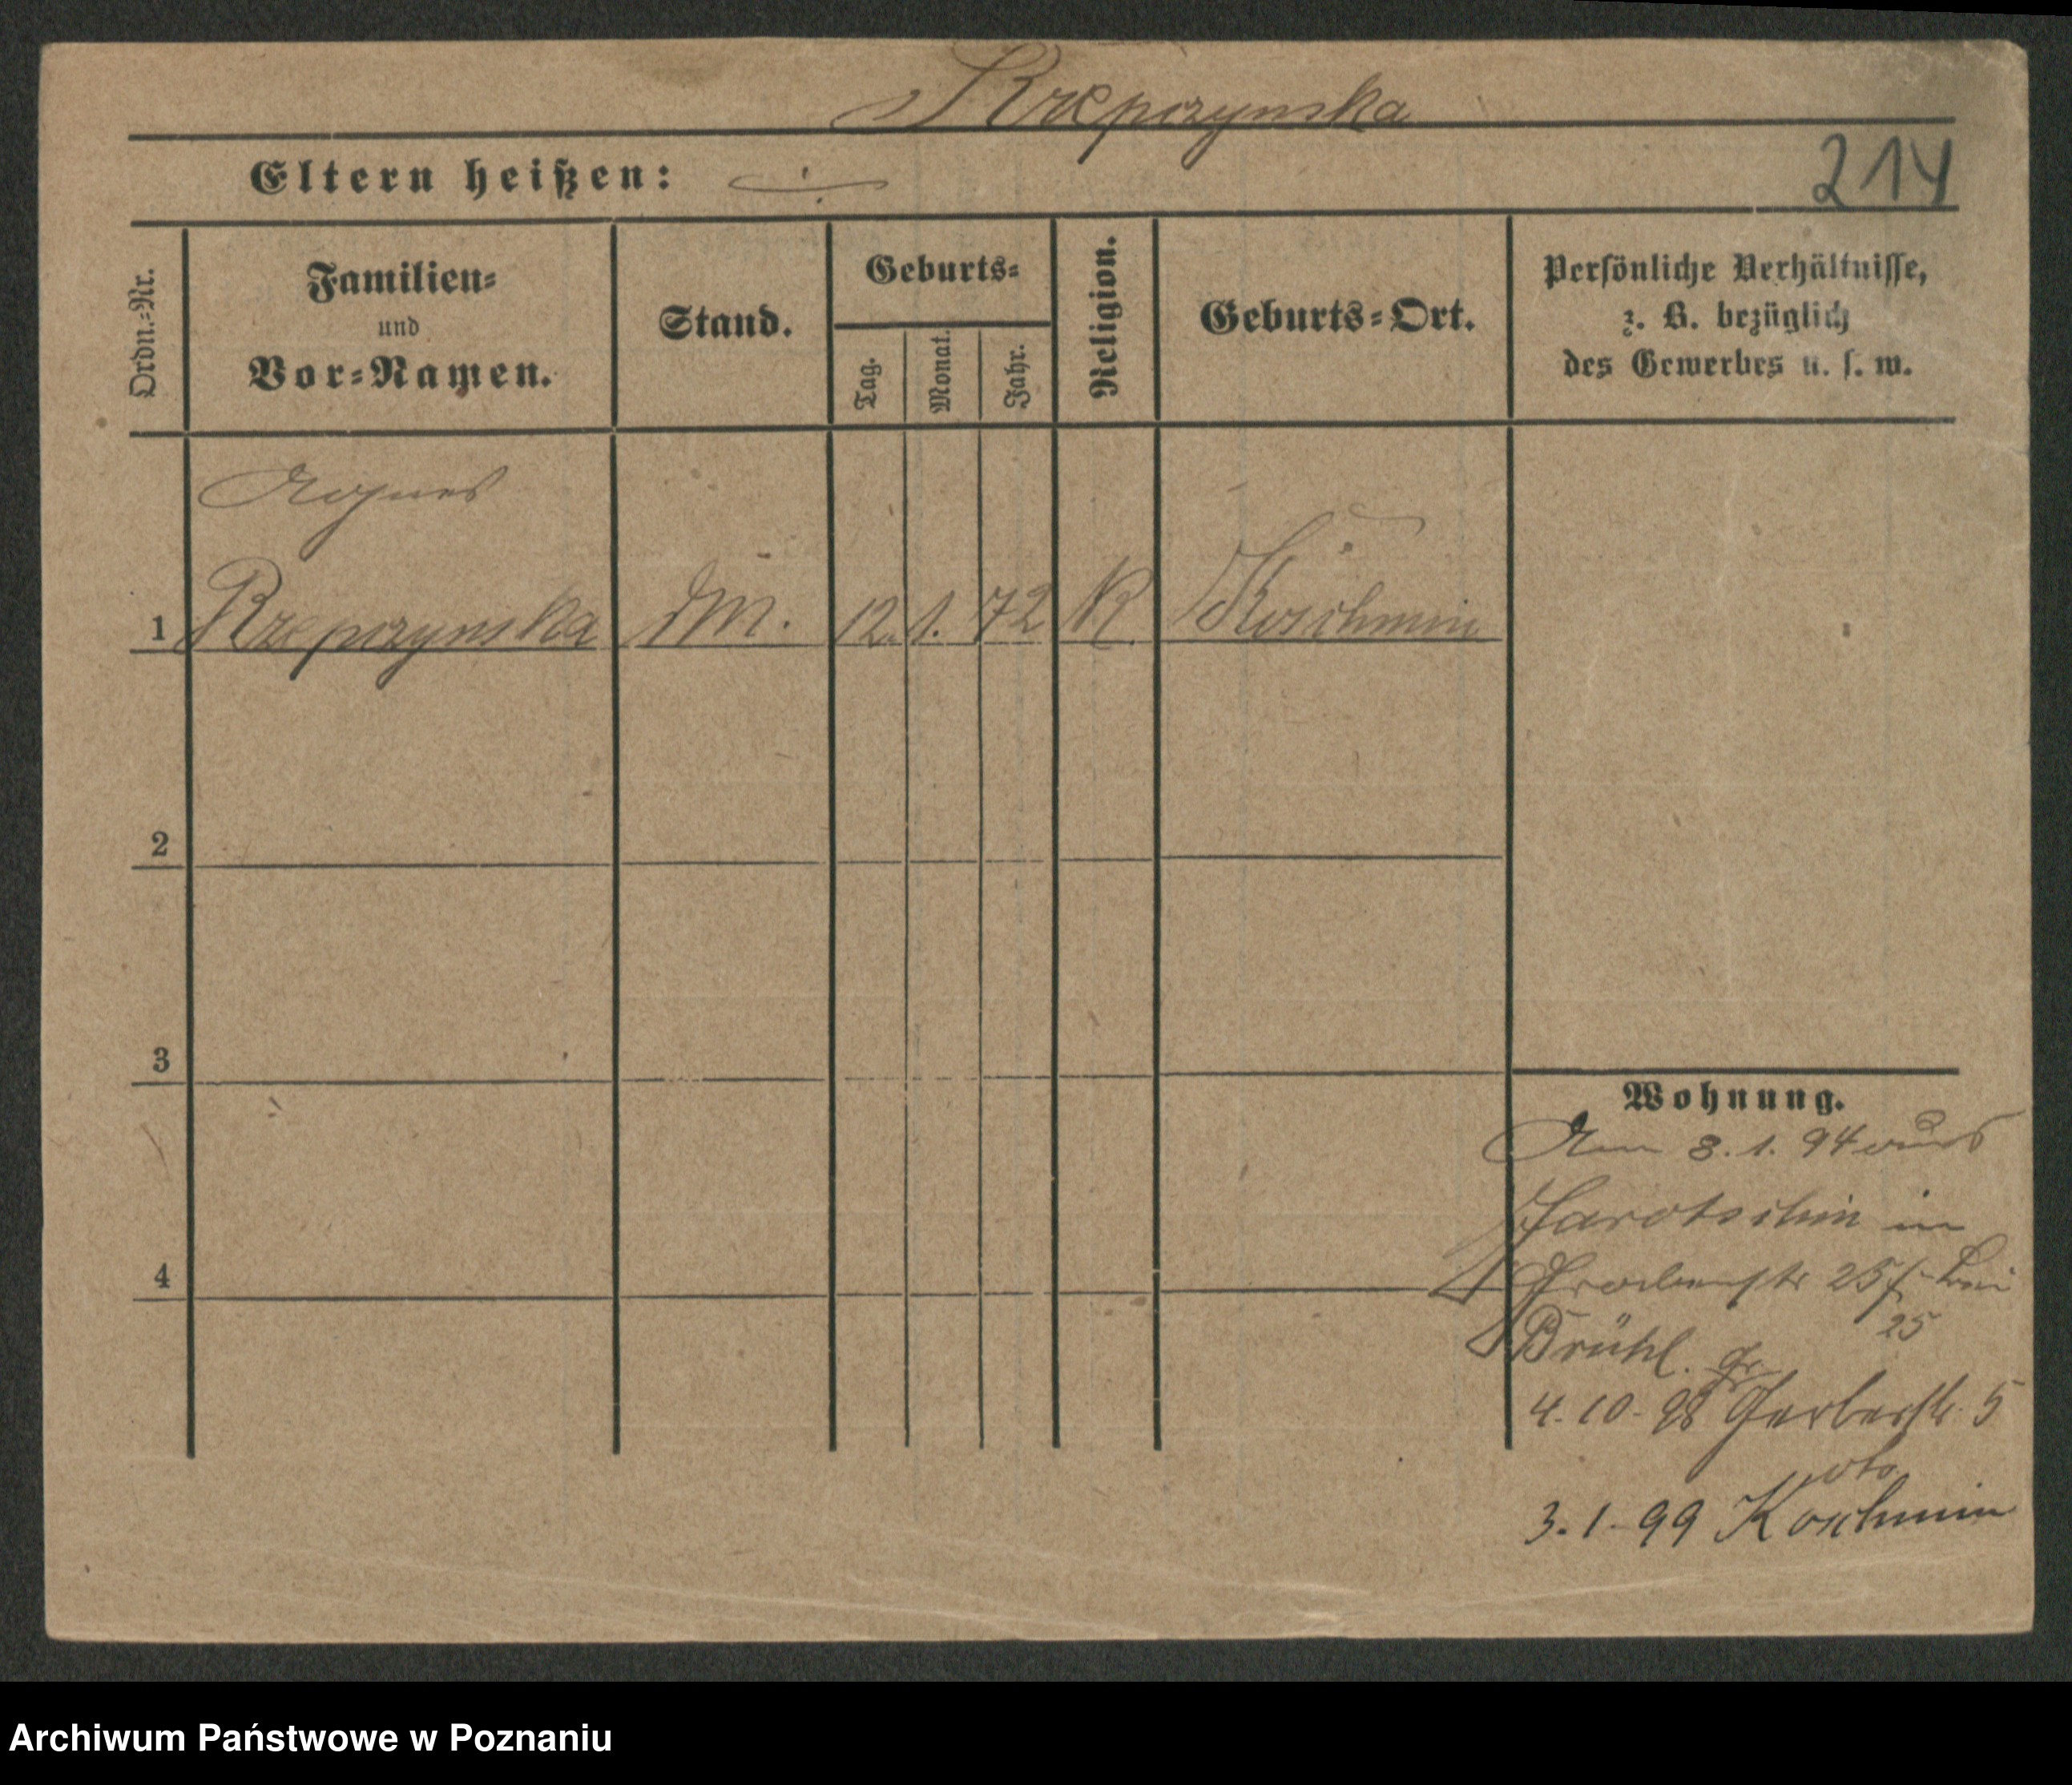 Rzepczynska
Eltern heißen: ÷
214
Ordn.=Nr.
Familien=
und
Vor=Namen.
Stand.
Geburts=
Tag.
Monat.
Jahr.
Religion.
Geburts=Ort.
Persönliche Verhältnisse,
z. B. bezüglich
des Gewerbes u. s. w.
Agnes
1 Rzepczynska DM. 12. 1. 72 K. Koschmin
2
3
4
Wohnung.
Am 3. 1. 94 aus
Jarotschin in
25 bei
25
Brühl. Gr.
4. 10. 98 Gerberstr. 5
3. 1. 99 Koschmin
Archiwum Państwowe w Poznaniu